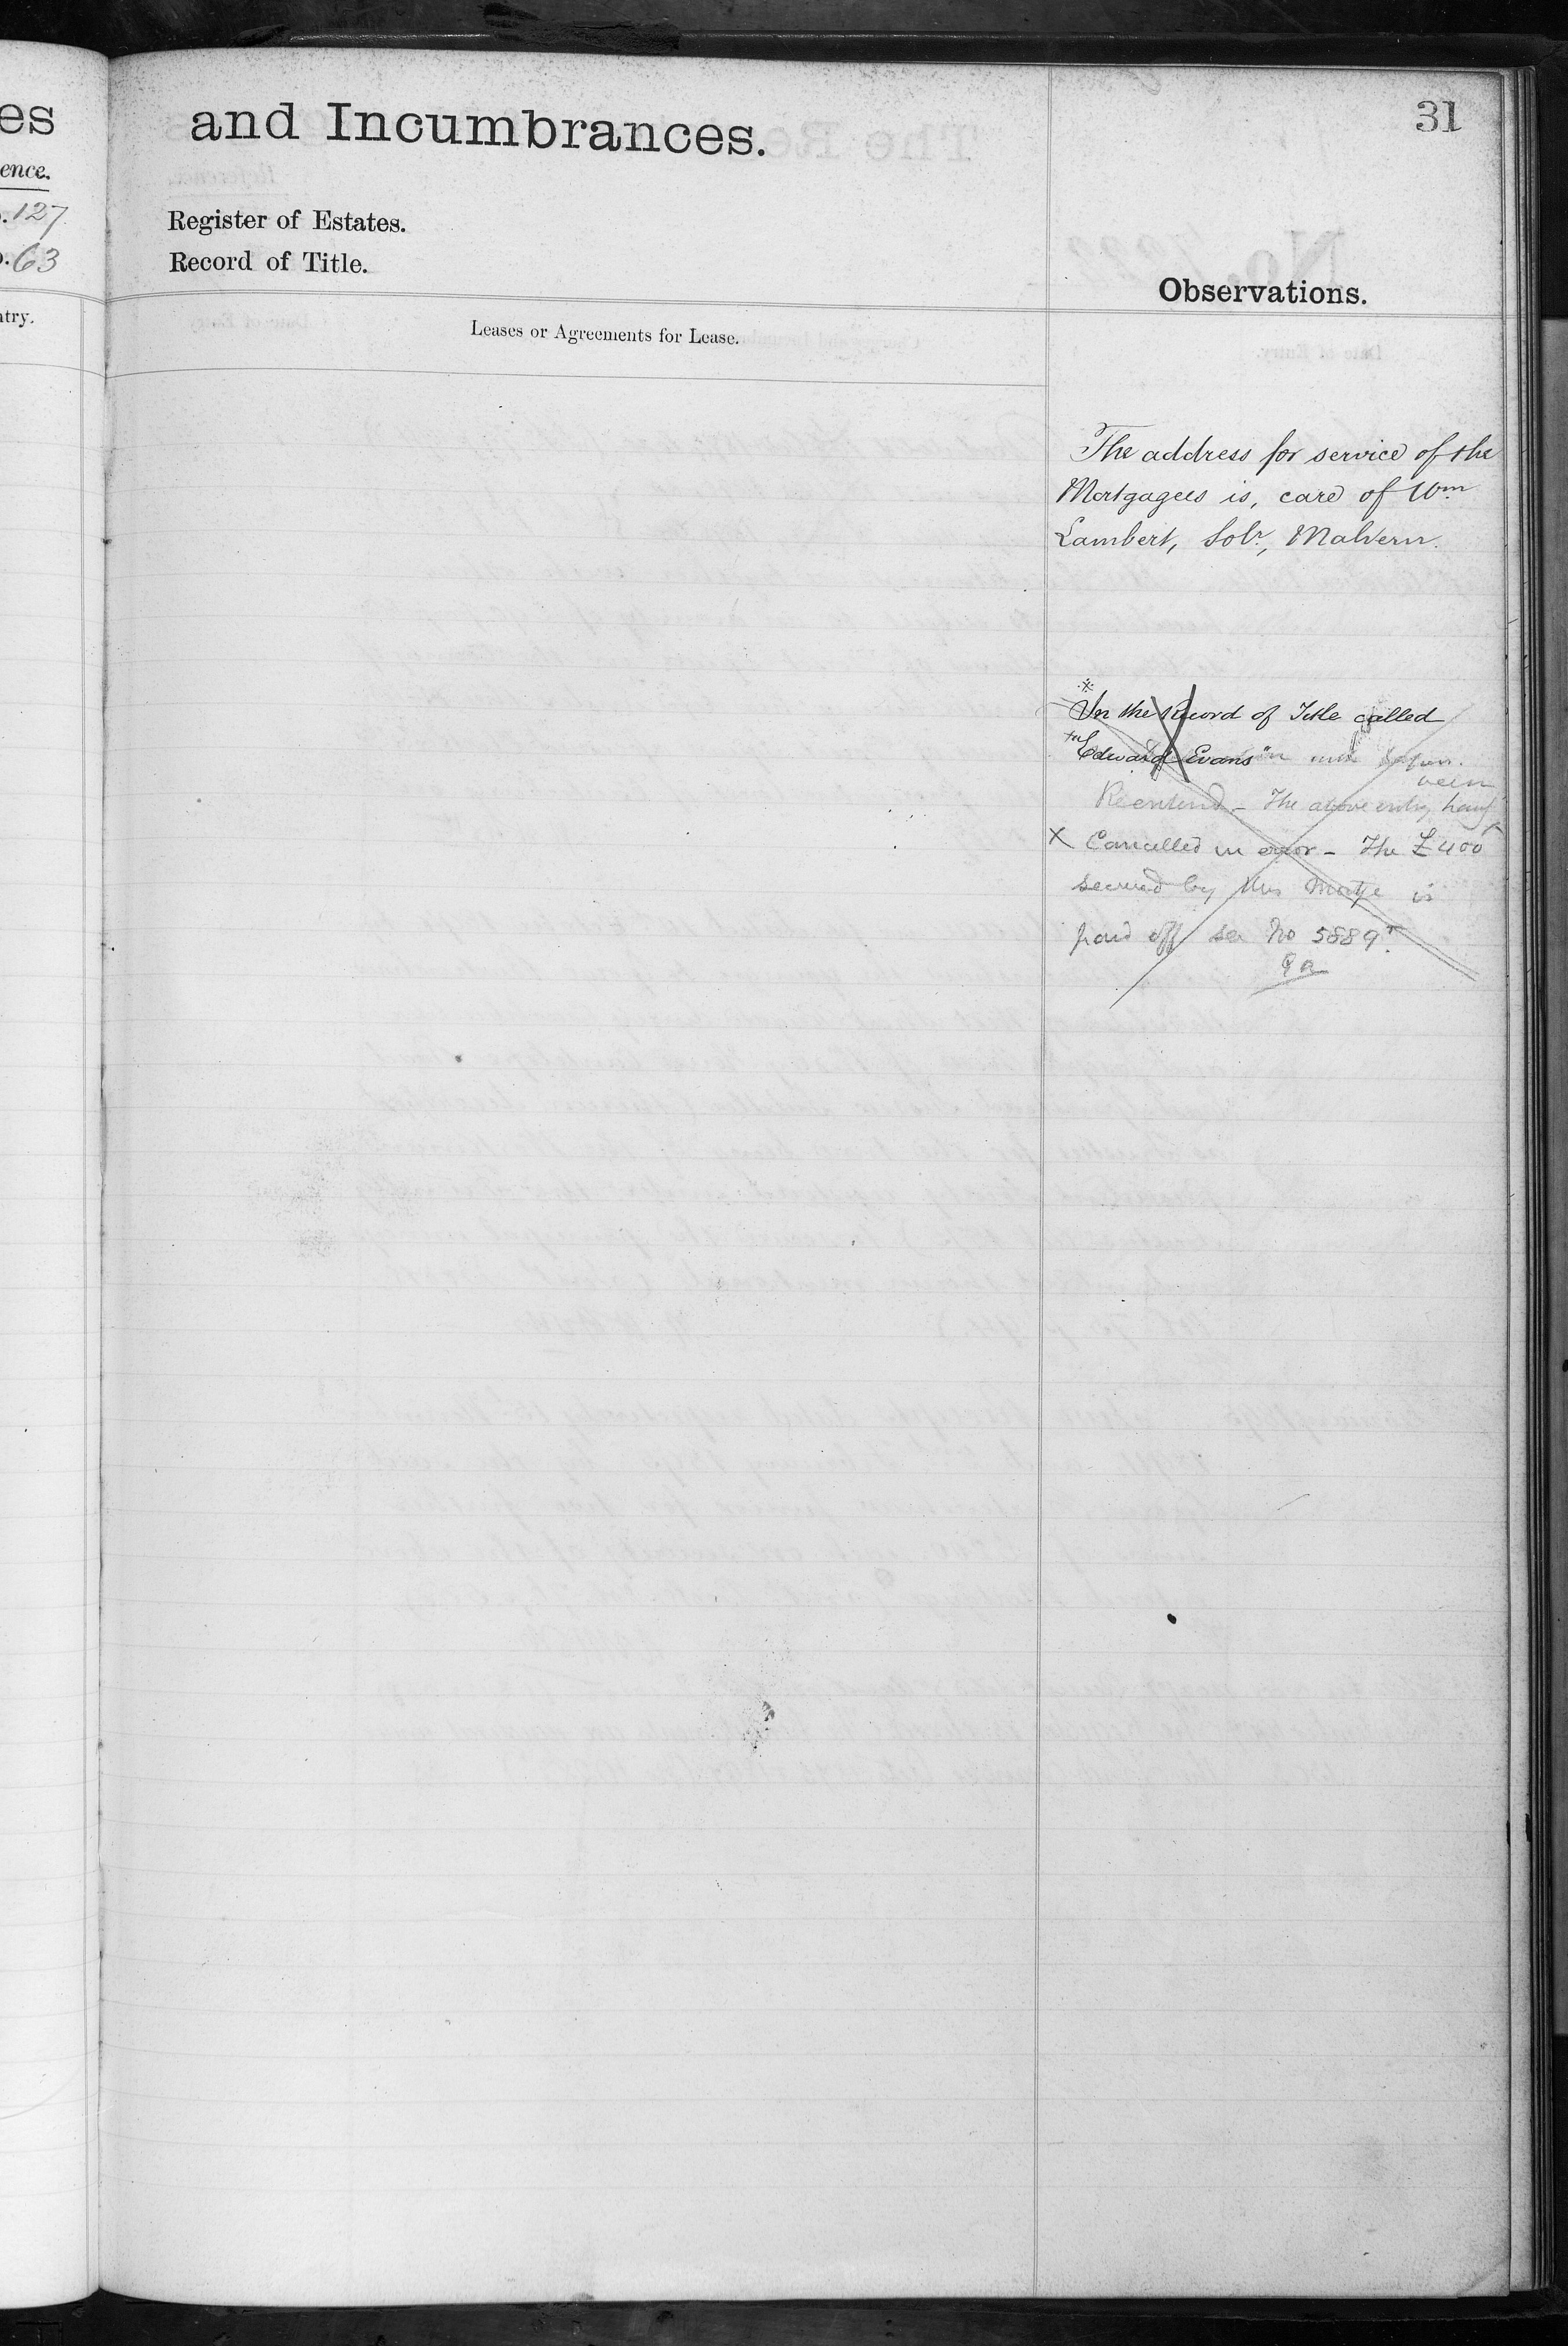 es
ence.
.127
.63
ntry.
and Incumbrances.
31
Register of Estates.
Record of Title.
Observations.
Leases or Agreements for Lease.
The address for service of the
Mortgagees is, care of Wm
Lambert, Solr, Malvern.
In the Record of Title called
"Edward Evans"
been
Reentered - The above entry havg
X Cancelled in error - The £400
secured by this Mortge is
paid off see No 5889